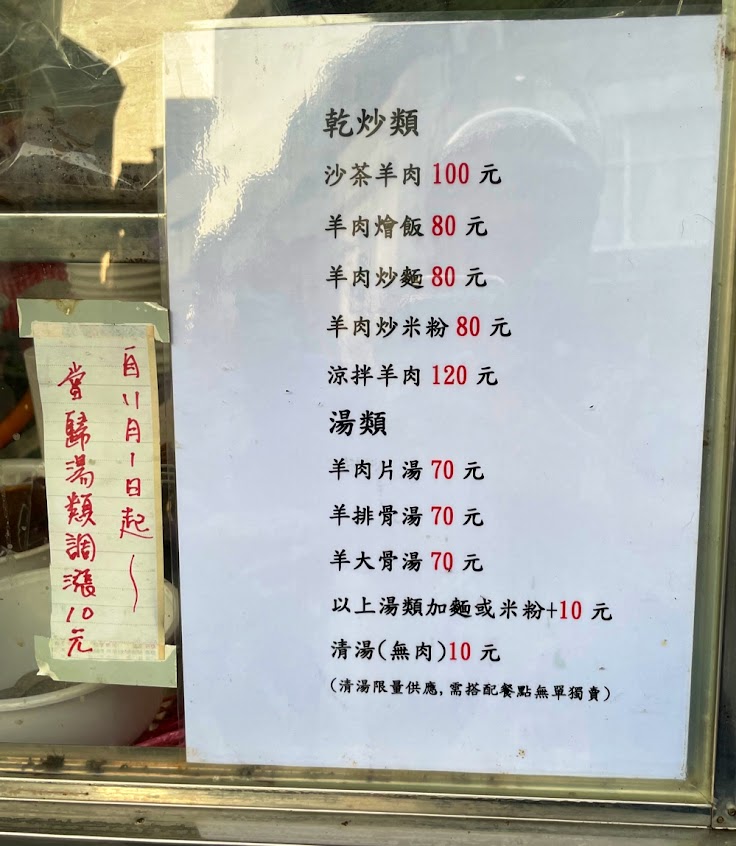 乾炒類
沙茶羊肉 100 元
羊肉燴飯 80 元
羊肉炒麵 80 元
羊肉炒米粉 80 元
涼拌羊肉 120 元
湯類
羊肉片湯 70 元
羊排骨湯 70 元
羊大骨湯 70 元
以上湯類加麵或米粉+10 元
清湯(無肉)10 元
(清湯限量供應,需搭配餐點無單獨賣)
自11月1日起～
當歸湯類調漲10元